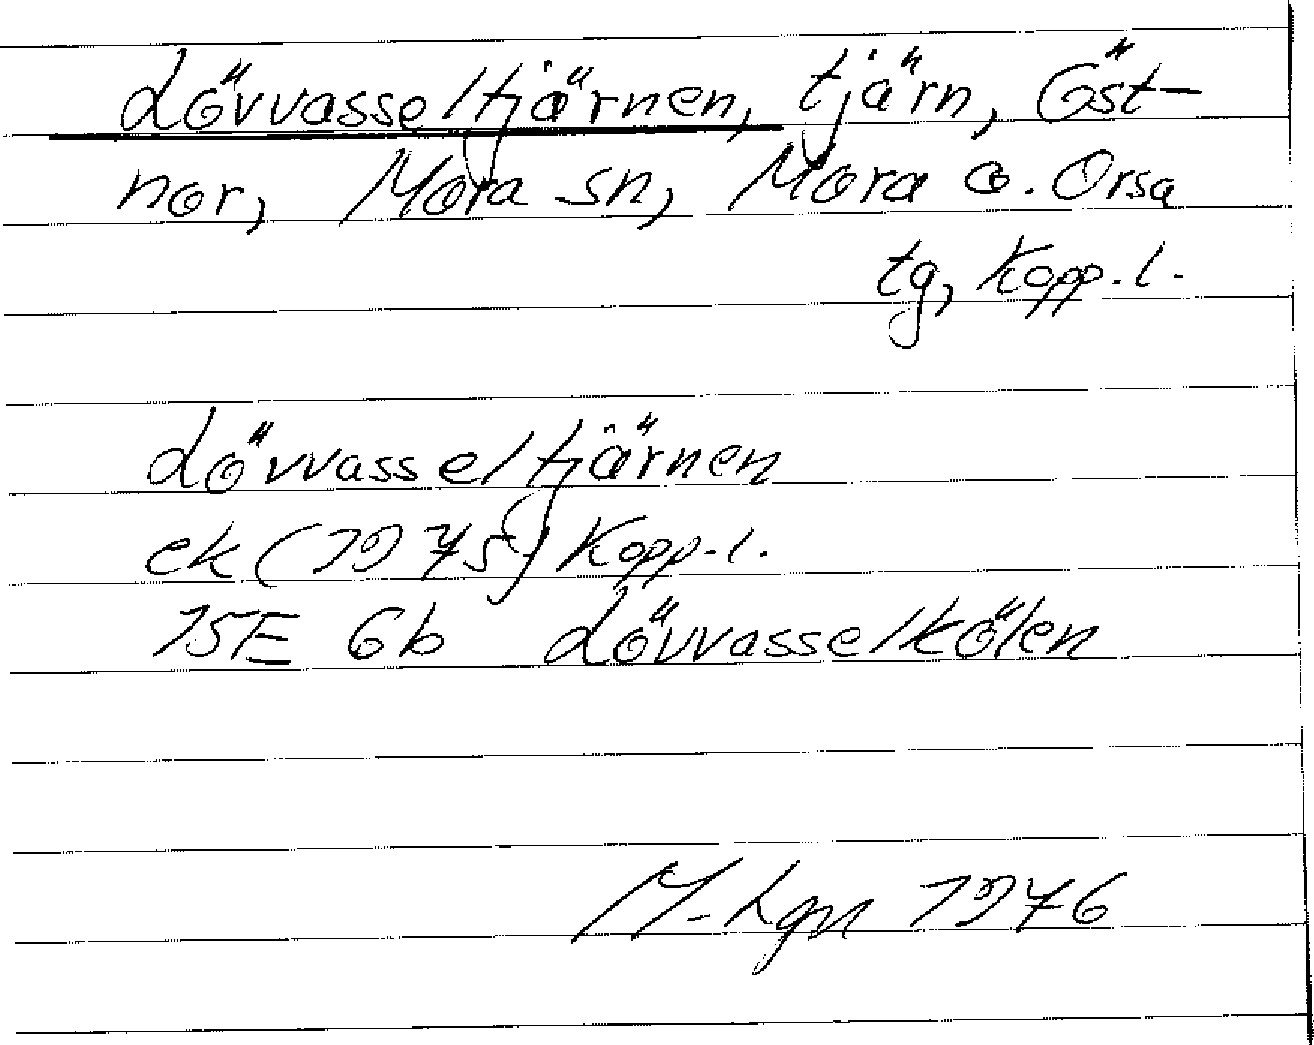 Lövvasseltjärnen, tjärn, Öst-
nor, Mora sn, Mora o. Orsa
tg, Kopp.l.
Lövvasseltjärnen
ek (1975) Kopp.l.
15E 6b Lövvasselkölen
M-Lgn 1976